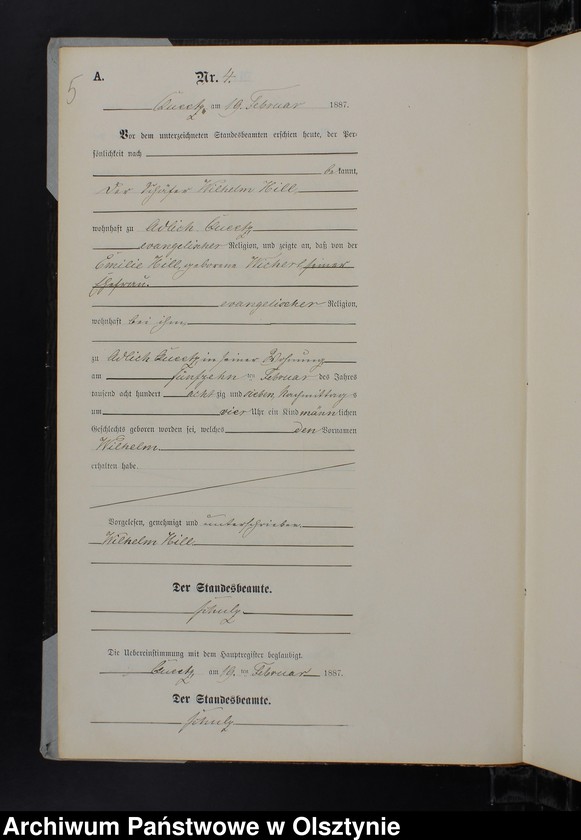 5
A. Nr. 4.
Queetz, am 19. Februar 1887.
Vor dem unterzeichneten Standesbeamten erschien heute, der Per-
sönlichkeit nach
bekannt,
Der Schäfer Wilhelm Hill,
wohnhaft zu Adlich Queetz,
evangelischer Religion, und zeigte an, daß von der
Emilie Hill, geborene Wichert, seiner
Ehefrau,
evangelischer Religion,
wohnhaft bei ihm,
zu Adlich Queetz in seiner Wohnung
am fünfzehn ten Februar des Jahres
tausend acht hundert achtzig und sieben Nachmittags
um vier Uhr ein Kind männlichen
Geschlechts geboren worden sei, welches den Vornamen
Wilhelm
erhalten habe.
Vorgelesen, genehmigt und unterschrieben
Wilhelm Hill
Der Standesbeamte.
Schulz
Die Uebereinstimmung mit dem Hauptregister beglaubigt.
Queetz, am 19. ten Februar 1887.
Der Standesbeamte.
Schulz
Archiwum Państwowe w Olsztynie